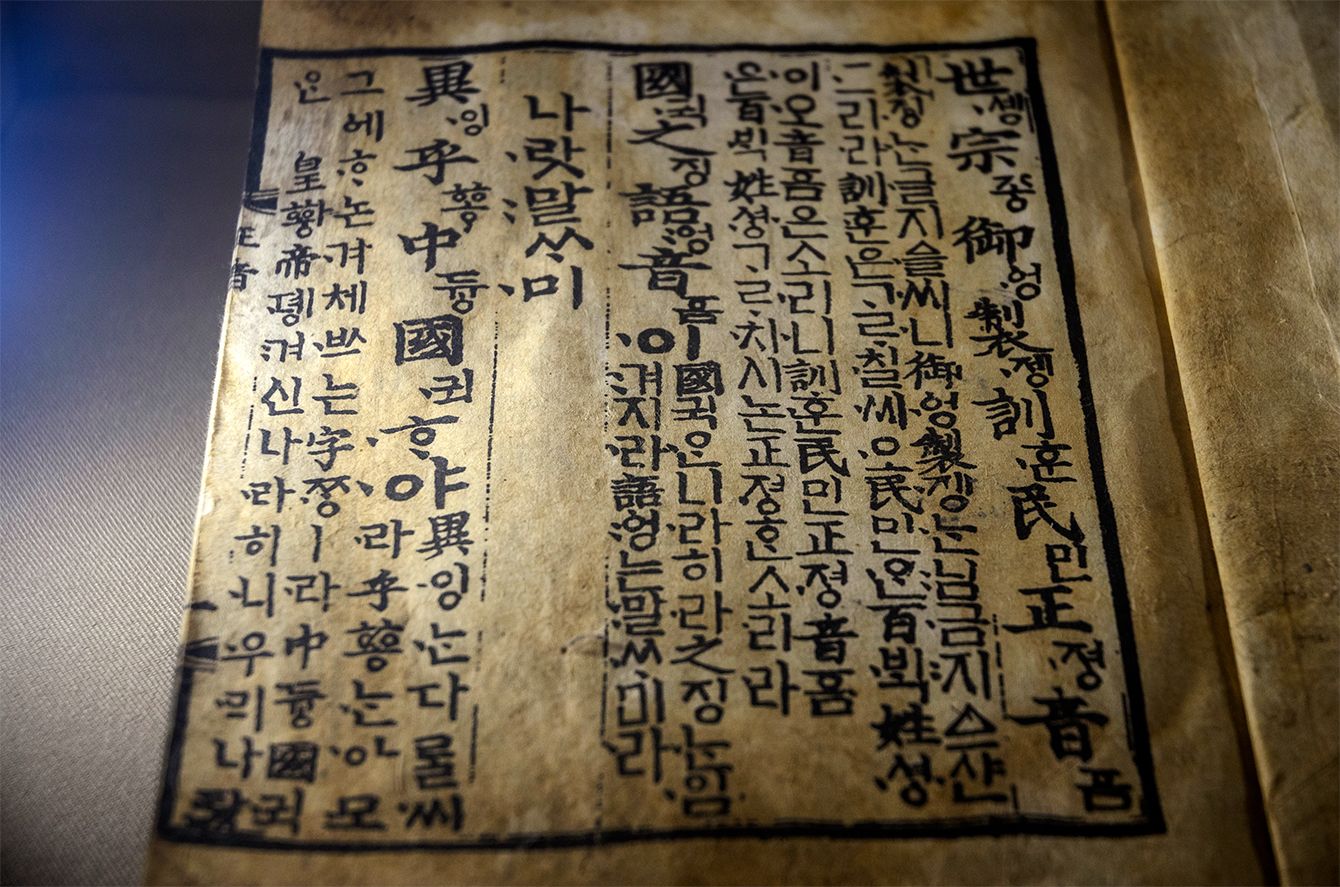 世솅宗조ᇰ御ᅌᅥᆼ製졩訓훈民민正져ᇰ音ᅙᅳᆷ
製졩ᄂᆞᆫ글지ᅀᅳᆯ씨니御ᅌᅥᆼ製졩ᄂᆞᆫ님금지ᅀᅳ샨
그리라訓훈은ᄀᆞᄅᆞ칠씨오民민ᄋᆞᆫ百ᄇᆡᆨ姓셔ᇰ
이오音ᅙᅳᆷ은소리니訓훈民민正져ᇰ音ᅙᅳᆷ
은百ᄇᆡᆨ姓셔ᇰᄀᆞᄅᆞ치시논正져ᇰᄒᆞᆫ소리라
國귁之징語ᅌᅥᆼ音ᅙᅳᆷ이
國귁ᄋᆞᆫ나라히라之징ᄂᆞᆫ입
겨지라語ᅌᅥᆼᄂᆞᆫ말ᄊᆞ미라
나랏말ᄊᆞ미
異잉乎ᅘᅩᆼ中듀ᇰ國귁ᄒᆞ야
異잉ᄂᆞᆫ다ᄅᆞᆯ씨
라乎ᅘᅩᆼᄂᆞᆫ아모
그ᅌᅦᄒᆞ논겨체ᄡᅳ는字ᄍᆞᆼㅣ라中듀ᇰ國귁
ᄋᆞᆫ皇ᅘᅪᇰ帝뎽겨신나라히니우리나랏
正音